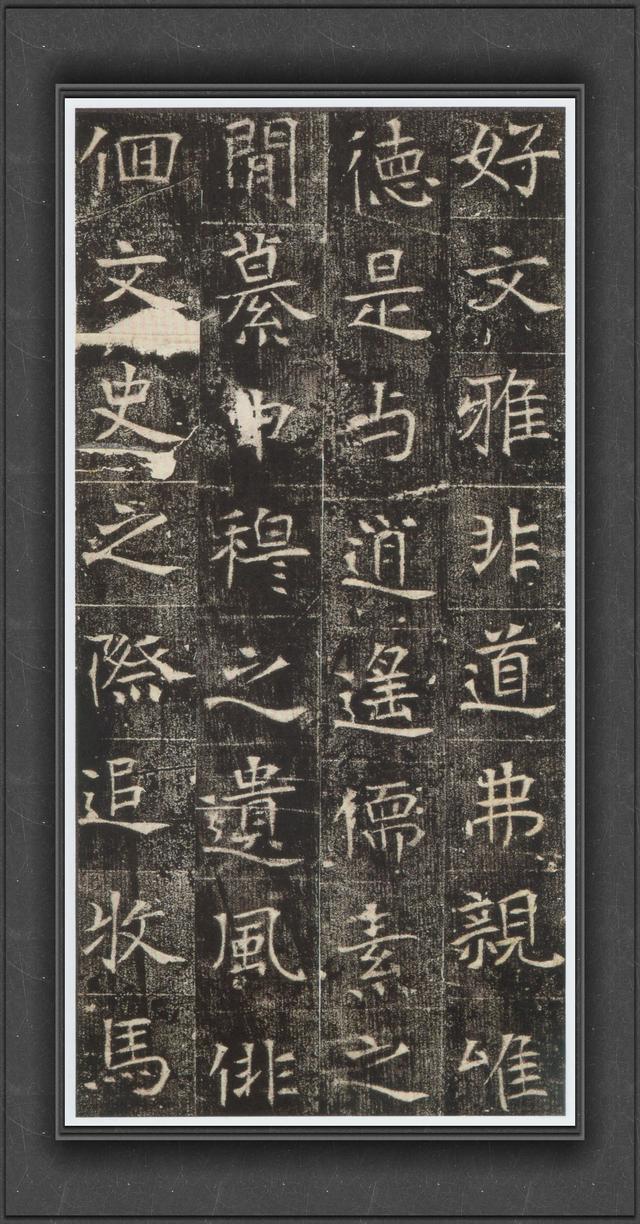 好文雅非道弗親唯
德是与逍遙儒素之
閒綦中穆之遺風俳
佪文史之際追收馬